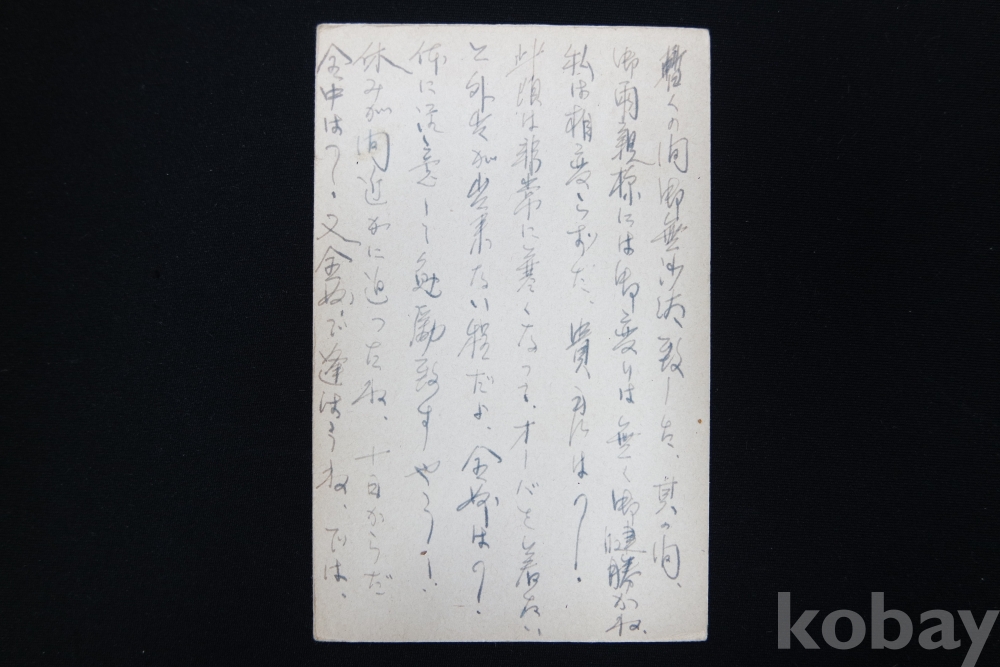 暫くの間御無沙汰致した、其の間、
御両親様には御変りは無く御健勝かね、
私は相変らずだ、貴君は?
此頃は非常に寒くなって、オーバを着ない
と外出が出来ない程だよ、全州は?
体に注意して勉励致すやう!
休みが間近かに迫ったね、十日からだ
全中は?又全州で逢はうね、では、
kobay